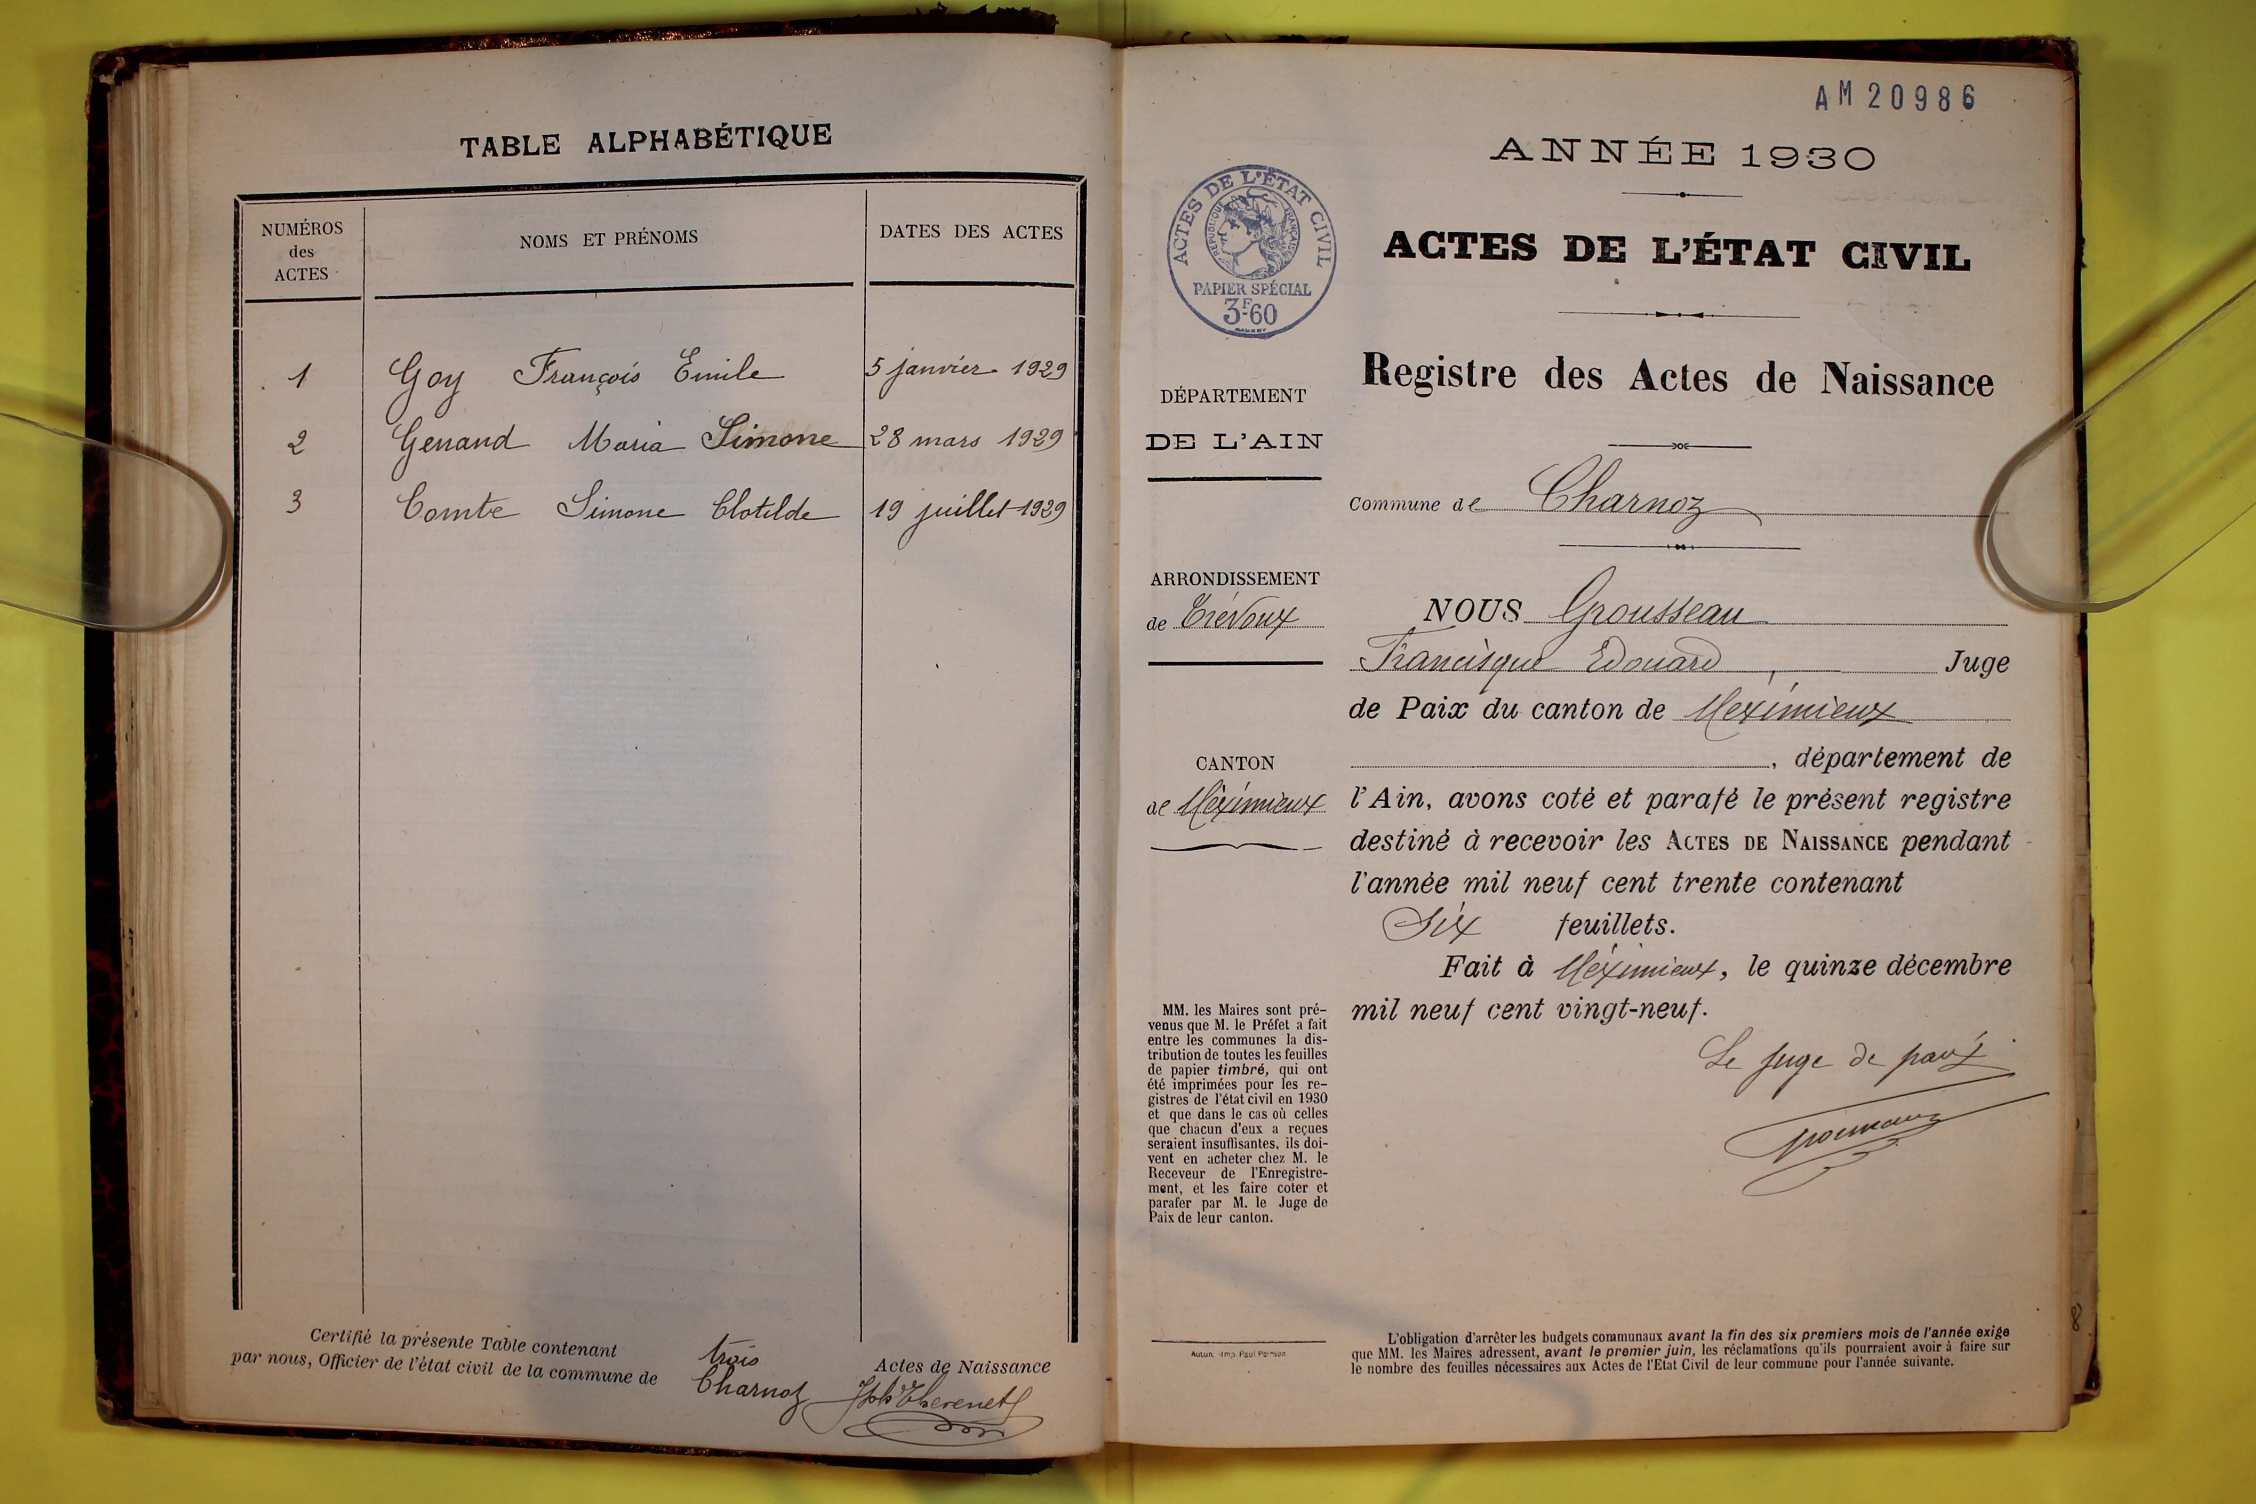 TABLE ALPHABÉTIQUE
NUMÉROS
des
ACTES
NOMS ET PRÉNOMS
DATES DES ACTES
1 Goy François Emile 5 janvier 1929
2 Genand Maria Simone 28 mars 1929
3 Comte Simone Clotilde 19 juillet 1929
Certifié la présente Table contenant trois Actes de Naissance
par nous, Officier de l'état civil de la commune de Charnoz
AM 20986
ANNÉE 1930
ACTES DE L'ÉTAT CIVIL
RÉPUBLIQUE FRANÇAISE
PAPIER SPÉCIAL
3F60
ACTES DE L'ÉTAT CIVIL
Registre des Actes de Naissance
DÉPARTEMENT
DE L'AIN
Commune de Charnoz
ARRONDISSEMENT
de Trévoux
CANTON
de Méximieux
NOUS Grousseau
Francisque Edouard, Juge
de Paix du canton de Méximieux
, département de
l'Ain, avons coté et parafé le présent registre
destiné à recevoir les ACTES DE NAISSANCE pendant
l'année mil neuf cent trente contenant
Six feuillets.
Fait à Méximieux, le quinze décembre
mil neuf cent vingt-neuf.
Le juge de paix
MM. les Maires sont pré-
venus que M. le Préfet a fait
entre les communes la dis-
tribution de toutes les feuilles
de papier timbré, qui ont
été imprimées pour les re-
gistres de l'état civil en 1930
et que dans le cas où celles
que chacun d'eux a reçues
seraient insuffisantes, ils doi-
vent en acheter chez M. le
Receveur de l'Enregistre-
ment, et les faire coter et
parafer par M. le Juge de
Paix de leur canton.
L'obligation d'arrêter les budgets communaux avant la fin des six premiers mois de l'année exige
que MM. les Maires adressent, avant le premier juin, les réclamations qu'ils pourraient avoir à faire sur
le nombre des feuilles nécessaires aux Actes de l'Etat Civil de leur commune pour l'année suivante.